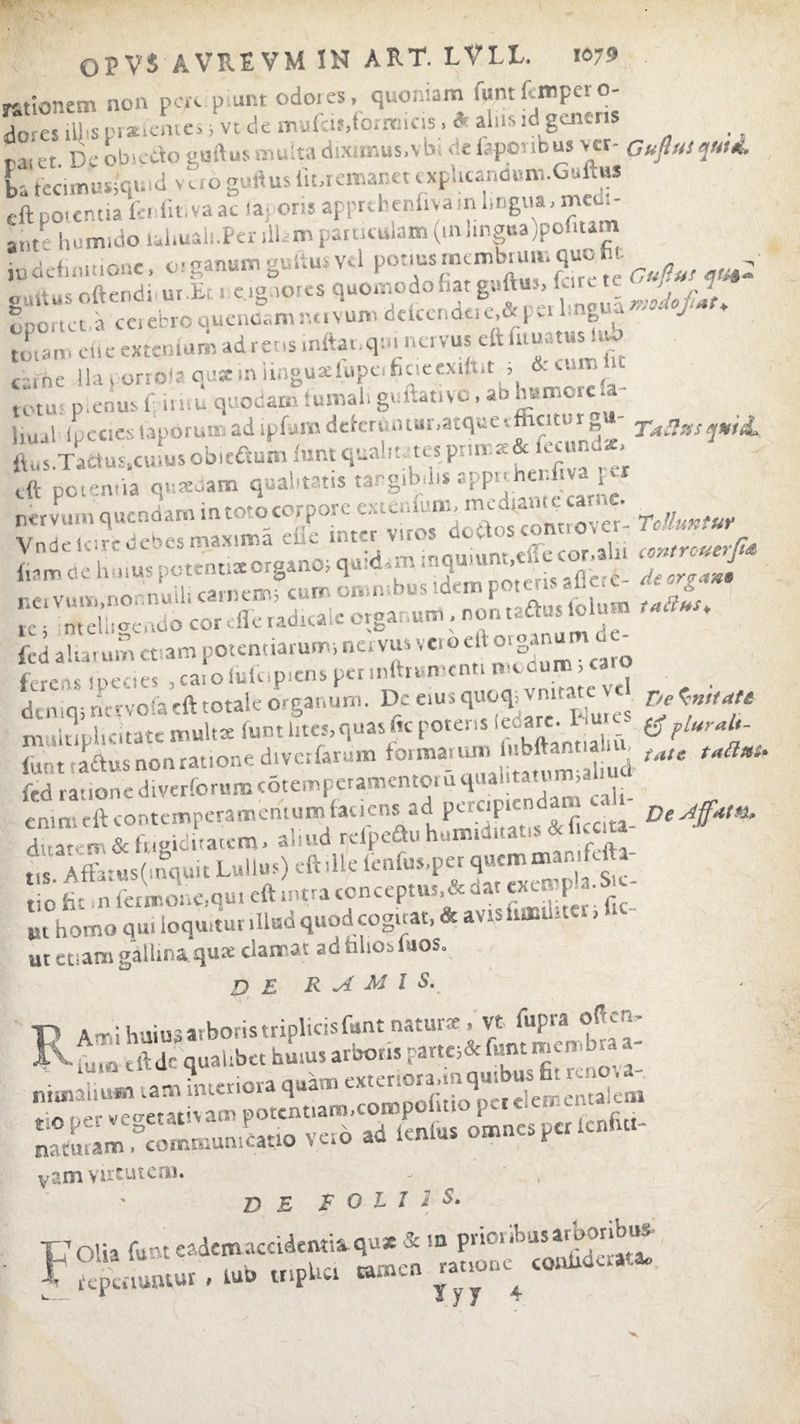 OPVS AVREVM IN ART. LVLL. 1079
rationem non percipiunt odores, quoniam ſunt ſemper o-
dores illis præſentes; vt de muſcis, formicis, & aliis id generis
patet. De obiecto guſtus multa diximus, vbi de ſaporibus ver- Guſtus quid.
ba fecimus; quid vero guſtus ſit, remanet explicandum. Guſtus
eſt potentia ſenſitiva ac ſaporis apprehenſiva in lingua, medi-
ante humido ſalivali. Per illam particulam (in lingua) poſitam
in definitione, organum guſtus vel potius membrum quo fit
guſtus oſtenditur. Et ne ignores quomodo fiat guſtus, ſcire te Guſtus quo-
oportet à cerebro quendam nervum deſcendere, & per linguã modo fiat.
totam eſſe extenſum ad retis inſtar, qui nervus eſt ſituatus ſub
carne illa porroſa quæ in linguæ ſuperficie exiſtit; & cum ſit
totus plenus ſpiritu quodam fumali guſtativo, ab humore ſa-
liuali ſpecies ſaporum ad ipſum deferuntur, atque efficitur gu- Tactus quid.
ſtus. Tactus, cuius obiectum ſunt qualitates primæ & ſecundæ,
eſt potentia quædam qualitatis tangibilis apprehenſiva per
nervum quendam in toto corpore extenſum, mediante carne.
Vnde ſcire debes maximã eſſe inter viros doctos controver- Tolluntur
ſiam de huius potentiæ organo; quidam inquiunt, eſſe cor, alii controuerſiæ
nervum, nonnulli carnem; cum omnibus idem poteris aſſere- de organo
re; intelligendo cor eſſe radicale organum, non tactus ſolum tactus.
ſed aliarum etiam potentiarum; nervus vero eſt organum de-
ferens ſpecies, caro ſuſcipiens per inſtrumenti modum; caro
deniq; nervoſa eſt totale organum. De eius quoq; vnitate vel De vnitate
multiplicitate multæ ſunt lites, quas ſic poteris ſedare. Plures & plurali-
ſunt tactus non ratione diverſarum formarum ſubſtantialiũ, tate tactus.
ſed ratione diverſorum cõtemperamentorũ qualitatum; aliud
enim eſt contemperamentum faciens ad percipiendam cali-
ditatem & frigiditatem, aliud reſpectu humiditatis & ſiccita- De Affatu.
tis. Affatus (inquit Lullus) eſt ille ſenſus, per quem manifeſta-
tio fit in ſermone, qui eſt intra conceptus, & dat exempla. Sic-
ut homo qui loquitur illud quod cogitat, & avis ſimiliter, ſic-
ut etiam gallina quæ clamat ad filios ſuos.
DE RAMIS.
RAmi huius arboris triplicis ſunt naturæ, vt ſupra oſten-
ſum eſt de qualibet huius arboris parte; & ſunt membra a-
nimalium tam interiora quàm exteriora, in quibus fit renova-
tio per vegetativam potentiam, compoſitio per elementalem
naturam, communicatio verò ad ſenſus omnes per ſenſiti-
vam virtutem.
DE FOLIIS.
FOlia ſunt eadem accidentia quæ & in prioribus arboribus
reperiuntur, ſub triplici tamen ratione conſiderata.
Yyy 4